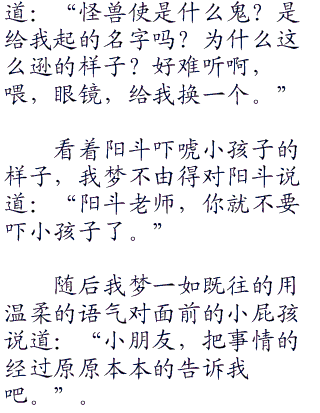 道：“怪兽使是什么鬼？是
给我起的名字吗？为什么这
么逊的样子？好难听啊，
喂，眼镜，给我换一个。”
看着阳斗吓唬小孩子的
样子，我梦不由得对阳斗说
道：“阳斗老师，你就不要
吓小孩子了。”
随后我梦一如既往的用
温柔的语气对面前的小屁孩
说道：“小朋友，把事情的
经过原原本本的告诉我
吧。”。